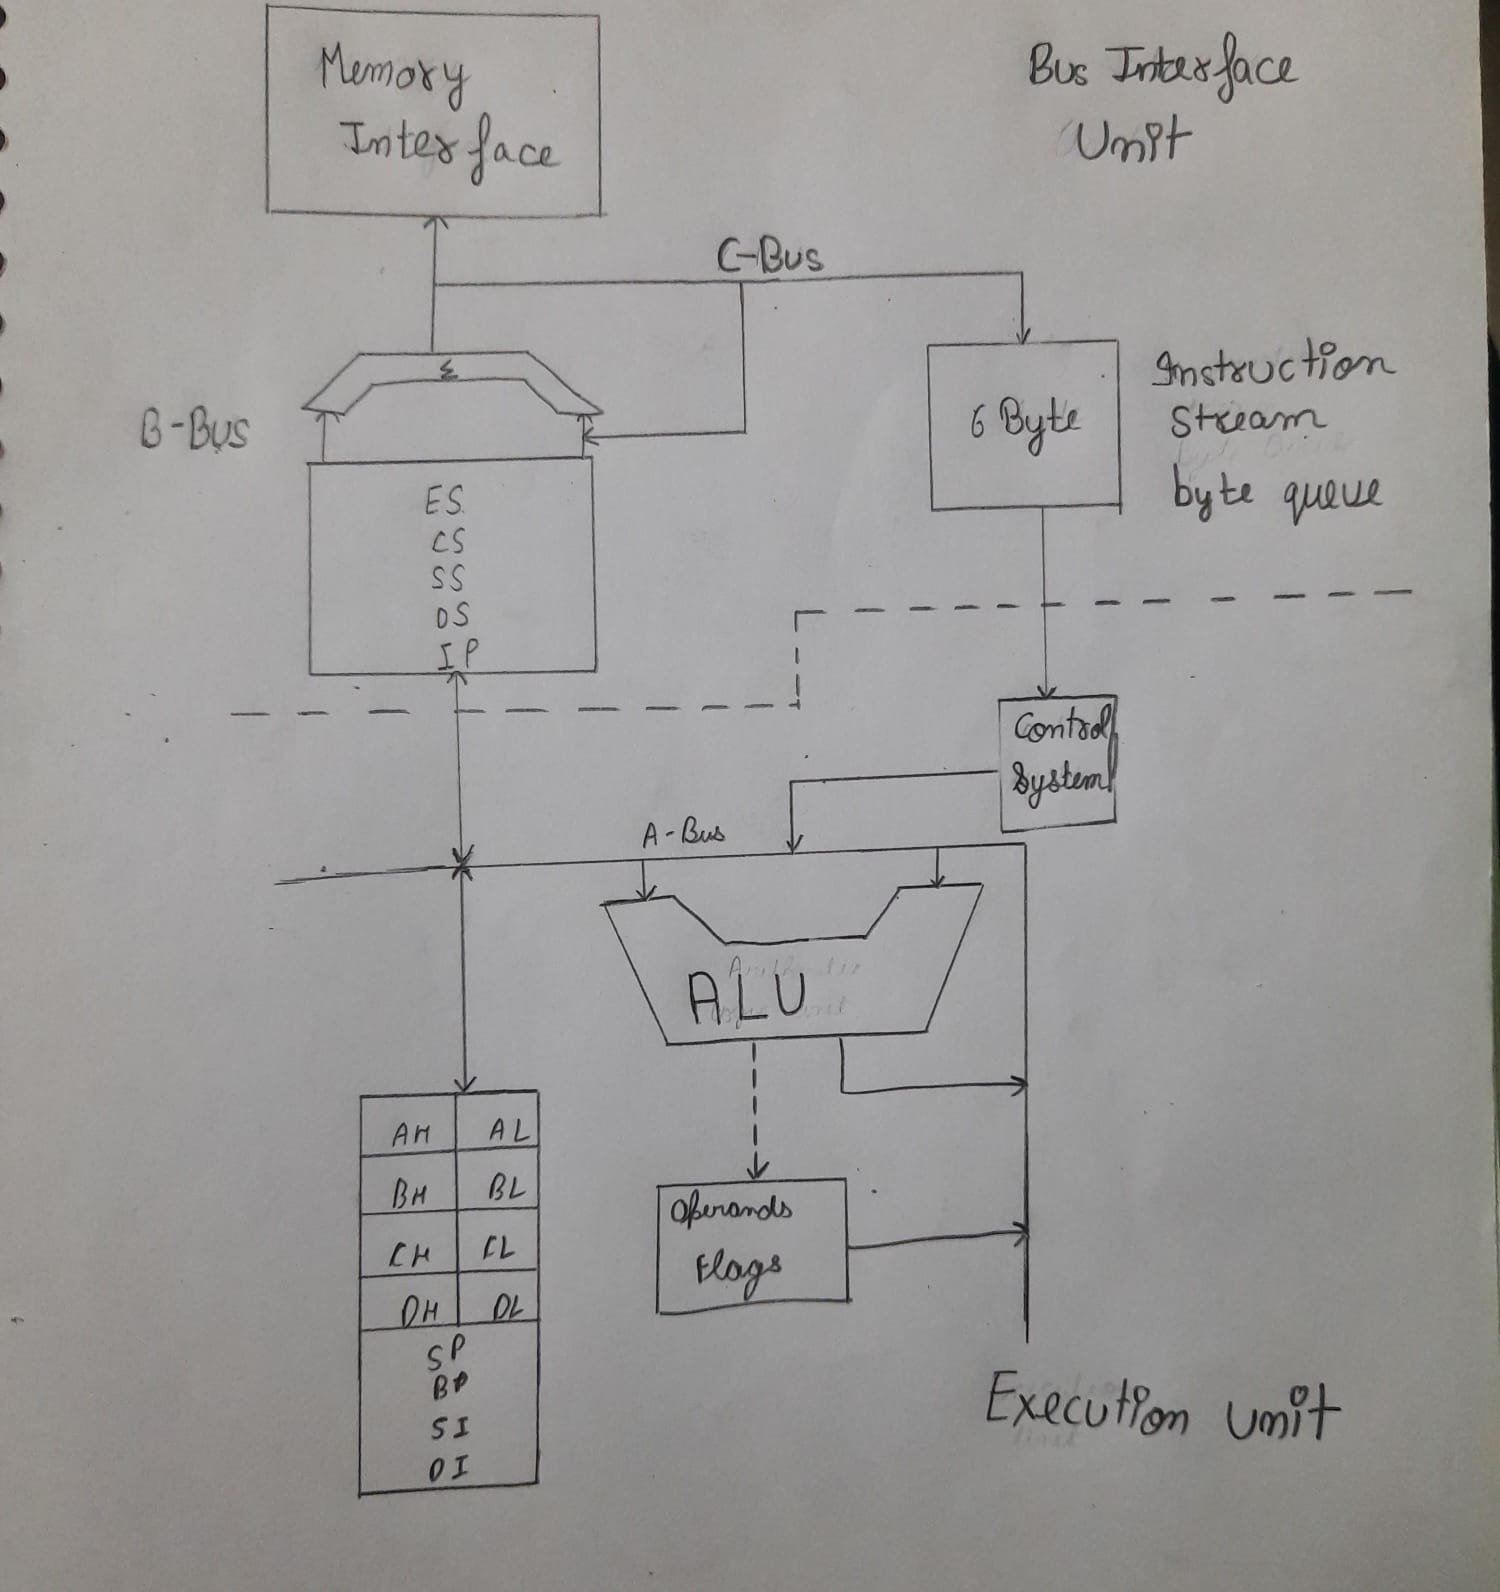 Memory
Interface
Bus Interface
Unit
C-Bus
Σ
B-Bus
6 Byte
Instruction
Stream
byte queue
ES
CS
SS
DS
IP
Control
System
A-Bus
ALU
AH AL
BH BL
CH CL
DH DL
SP
BP
SI
DI
Operands
Flags
Execution unit